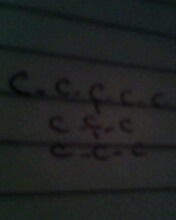 C-C-C-C-C
C C-C
C-C-C